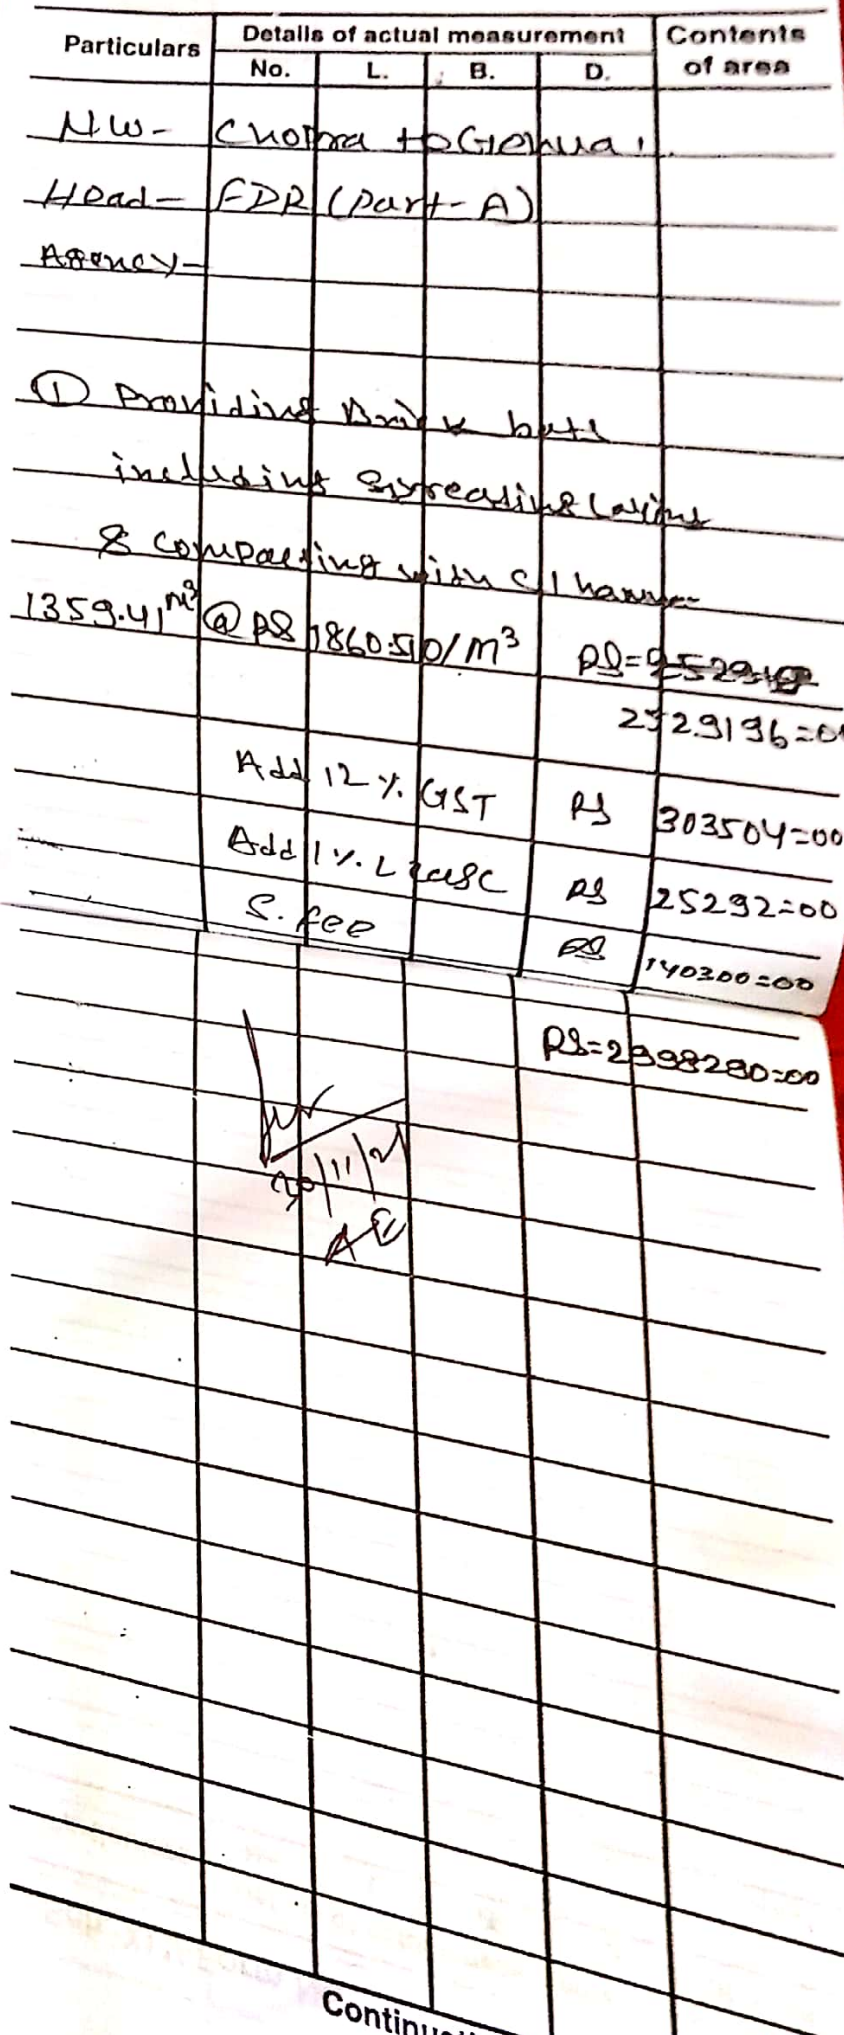 Particulars Details of actual measurement Contents of area
No. L. B. D.
N.W- Chopra to Gehua.
Head- FDR (Part-A)
Agency-
① Providing Brick bats
including Spreading Laying
& Compacting with CI hammer
1359.41 m³ @ RS 1860.50/m³ RS=
2529196=00
Add 12 %. GST RS 303504=00
Add 1 %. L RS 25292=00
S. fee RS 140300=00
RS=2998280=00
AE
Continu